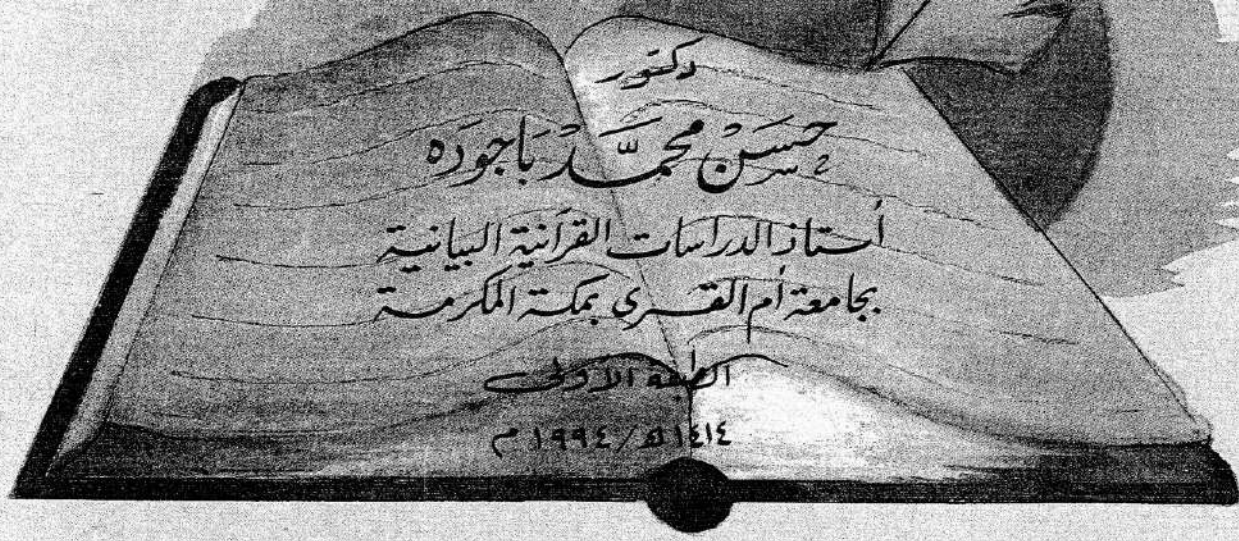 دكتور
حَسَنْ محمَّدْ بَاجودَه
أستاذ الدراسات القرآنية البيانية
بجامعة أم القرى بمكة المكرمة
الطبعة الأولى
١٤١٤هـ/١٩٩٤م